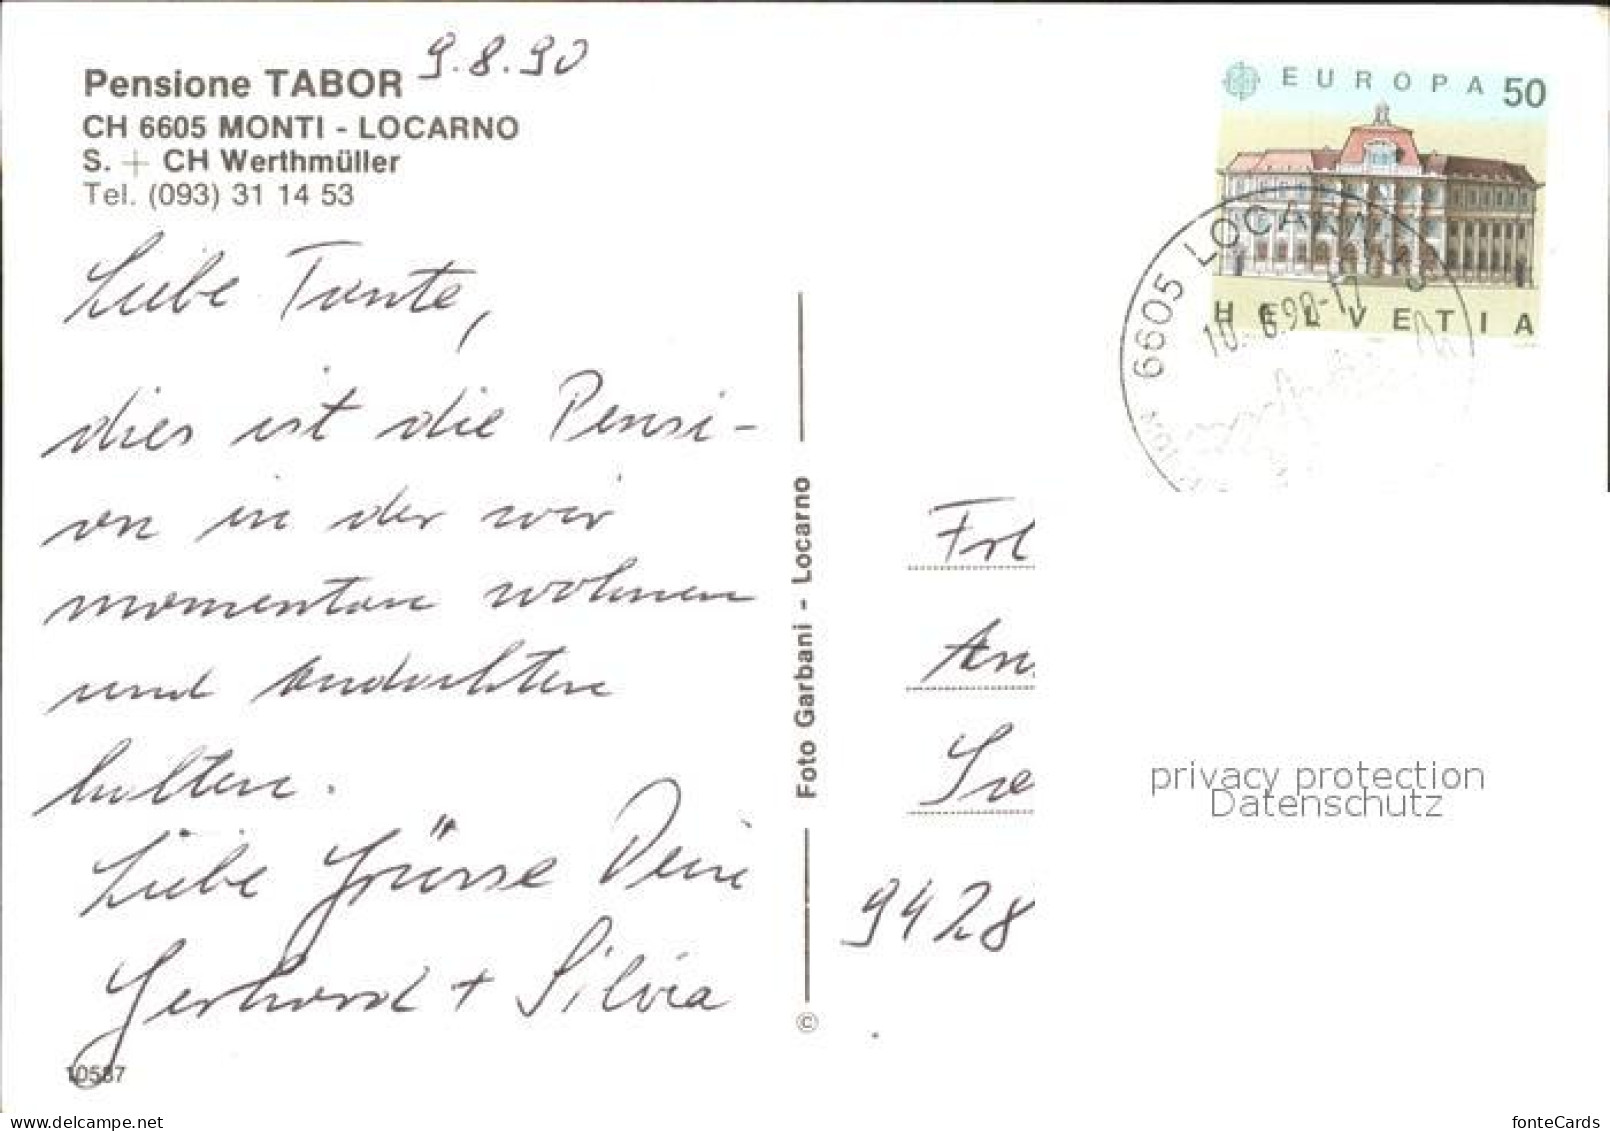 9.8.90
Pensione TABOR
CH 6605 MONTI - LOCARNO
S. + CH Werthmüller
Tel. (093) 31 14 53
Liebe Tante,
dies ist die Pensi-
on in der wir
momentan wohnen
und Andachten
halten.
Liebe Grüsse Deine
Gerhard + Silvia
10587
Foto Garbani - Locarno
©
EUROPA 50
HELVETIA
6605 LOCARNO
Frl
An
9428
privacy protection
Datenschutz
www.delcampe.net
fonteCards